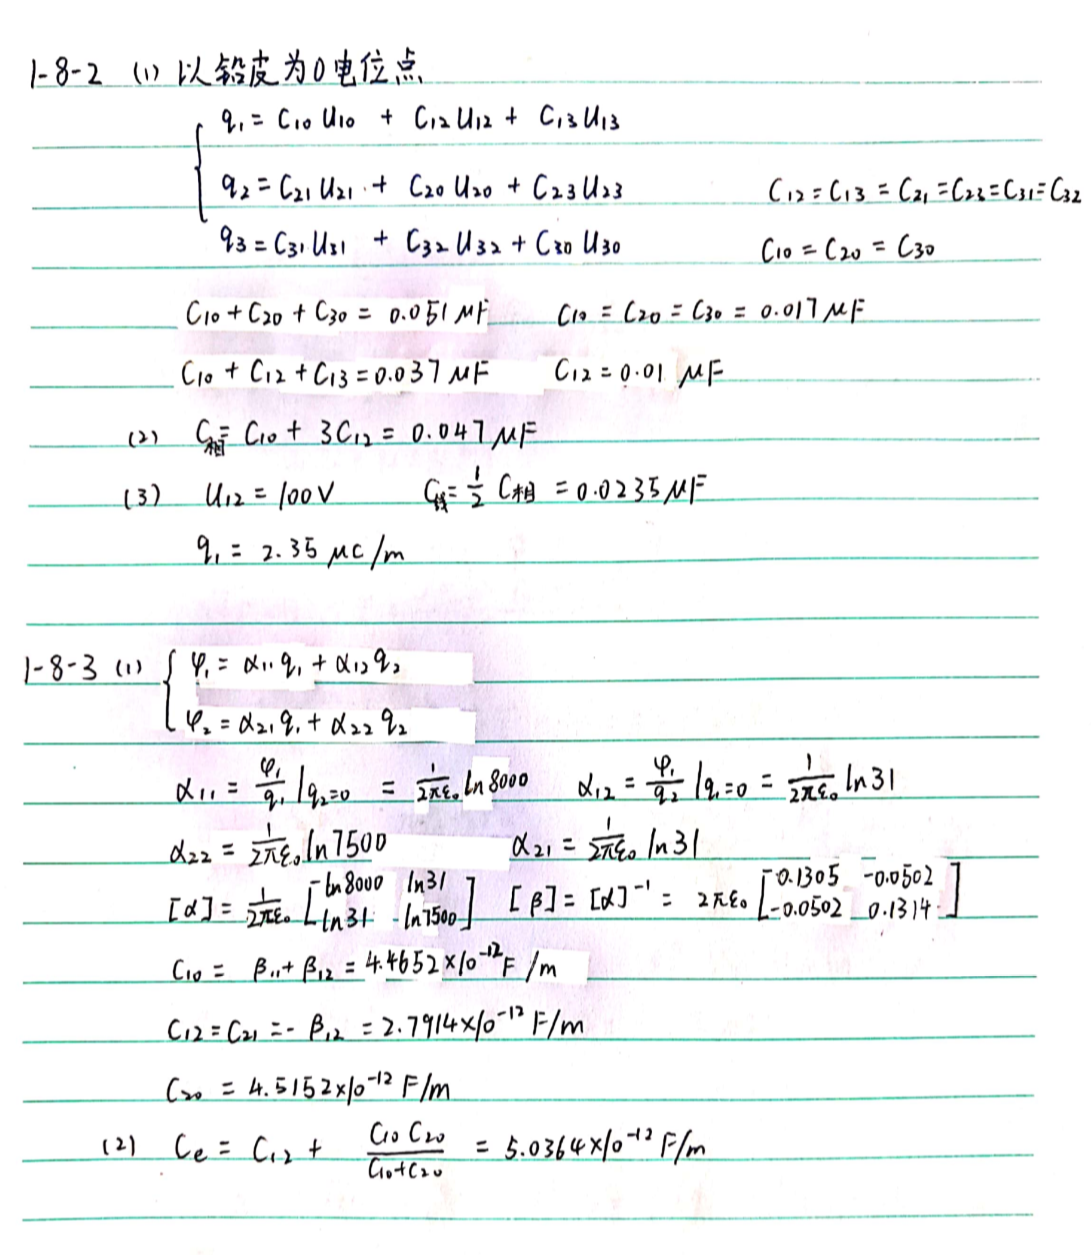 1-8-2 (1) 以铅皮为0电位点
q₁ = C₁₀ U₁₀ + C₁₂ U₁₂ + C₁₃ U₁₃
q₂ = C₂₁ U₂₁ + C₂₀ U₂₀ + C₂₃ U₂₃ C₁₂ = C₁₃ = C₂₁ = C₂₃ = C₃₁ = C₃₂
q₃ = C₃₁ U₃₁ + C₃₂ U₃₂ + C₃₀ U₃₀ C₁₀ = C₂₀ = C₃₀
C₁₀ + C₂₀ + C₃₀ = 0.051 μF C₁₀ = C₂₀ = C₃₀ = 0.017 μF
C₁₀ + C₁₂ + C₁₃ = 0.037 μF C₁₂ = 0.01 μF
(2) C相 = C₁₀ + 3C₁₂ = 0.047 μF
(3) U₁₂ = 100V C线 = 1/2 C相 = 0.0235 μF
q₁ = 2.35 μC/m
1-8-3 (1) φ₁ = α₁₁ q₁ + α₁₂ q₂
φ₂ = α₂₁ q₁ + α₂₂ q₂
α₁₁ = φ₁/q₁ |q₂=0 = 1/2πε₀ ln 8000 α₁₂ = φ₁/q₂ |q₁=0 = 1/2πε₀ ln 31
α₂₂ = 1/2πε₀ ln 7500 α₂₁ = 1/2πε₀ ln 31
[α] = 1/2πε₀ [ln 8000 ln 31 ln 31 ln 7500] [β] = [α]⁻¹ = 2πε₀ [0.1305 -0.0502 -0.0502 0.1314]
C₁₀ = β₁₁ + β₁₂ = 4.4652×10⁻¹² F/m
C₁₂ = C₂₁ = -β₁₂ = 2.7914×10⁻¹² F/m
C₂₀ = 4.5152×10⁻¹² F/m
(2) Ce = C₁₂ + C₁₀ C₂₀/C₁₀+C₂₀ = 5.0364×10⁻¹² F/m